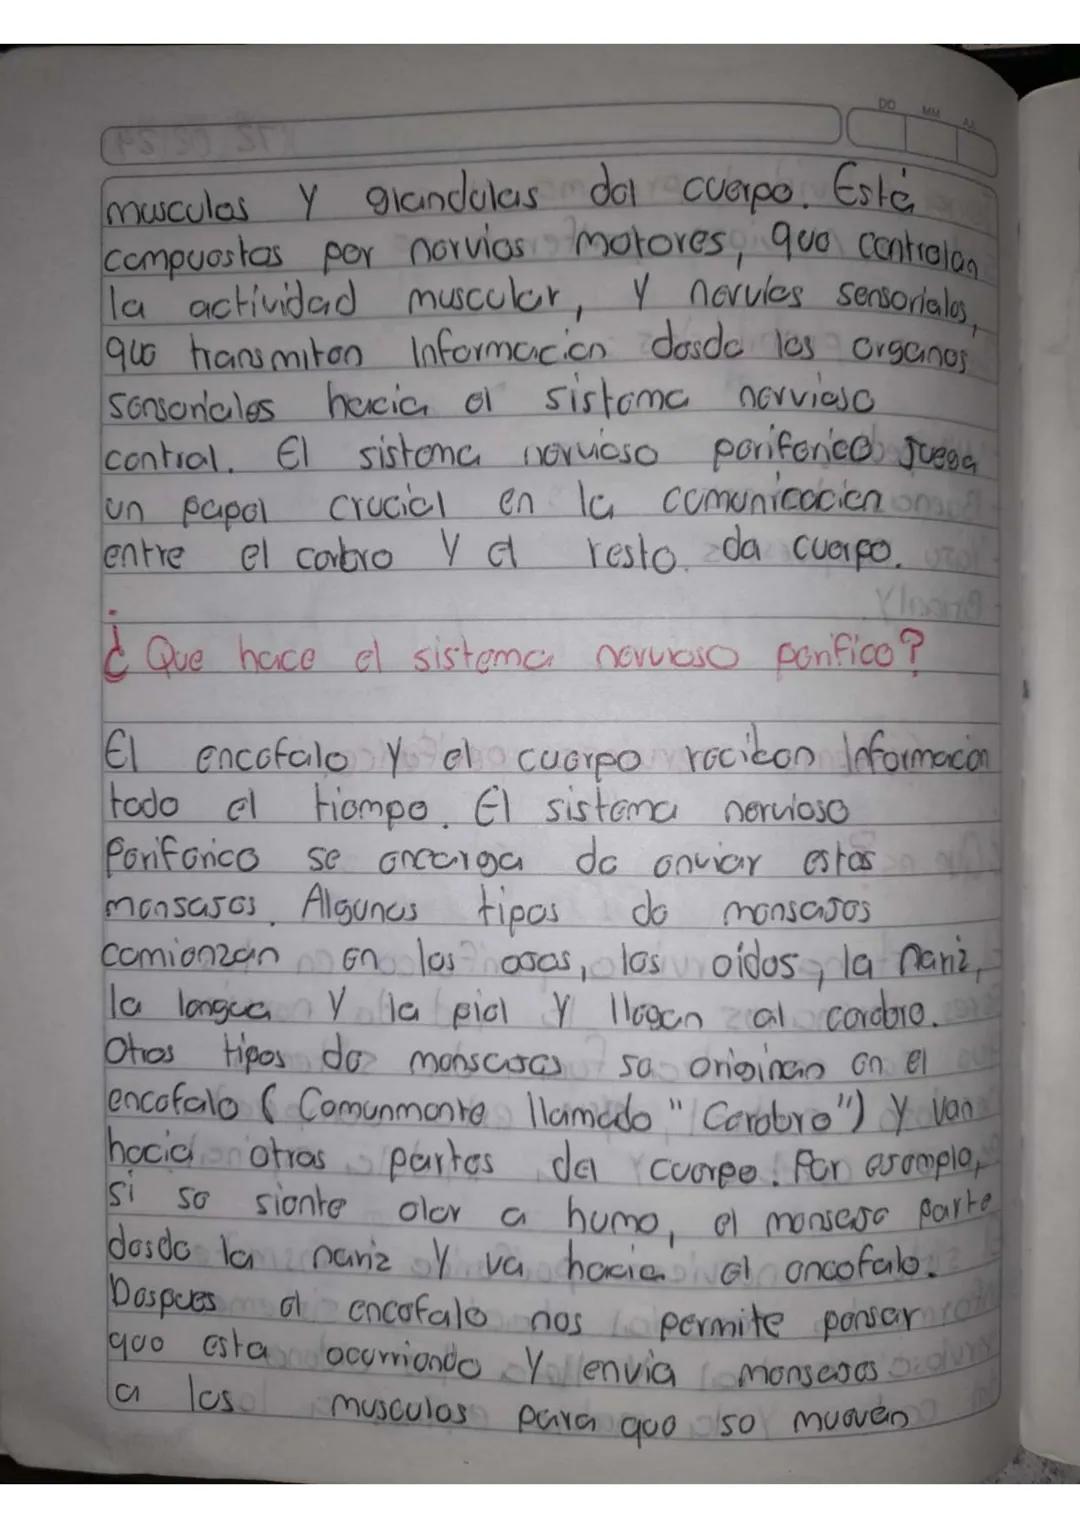 DD MM AA
musculos y glandulas del cuerpo. Está
compuestas por nervios motores, que controlan
la actividad muscular, y nervios sensoriales,
que transmiten Información desde los organos
sensoriales hacia el sistema nervioso
central. El sistema nervioso periferico Juega
un papel crucial en la comunicacion
entre el cerbro y el resto da cuerpo.
¿Que hace el sistema nervioso perifico?
El encefalo y el cuerpo reciben Información
todo el tiempo. El sistema nervioso
Periferico se encarga de enviar estos
mensajes. Algunos tipos de mensajes
comienzan en los ojos, los oídos, la nariz,
la lengua y la piel y llegan al cerebro.
Otros tipos de mensajes se originan en el
encefalo (Comunmente llamado "Cerebro") y van
hacia otras partes del cuerpo. Por ejemplo,
si se siente olor a humo, el mensaje parte
desde la nariz y va hacia el encefalo.
Despues el encefalo nos permite pensar
que esta ocurriendo y envía mensajes
a los musculos para que se mueven